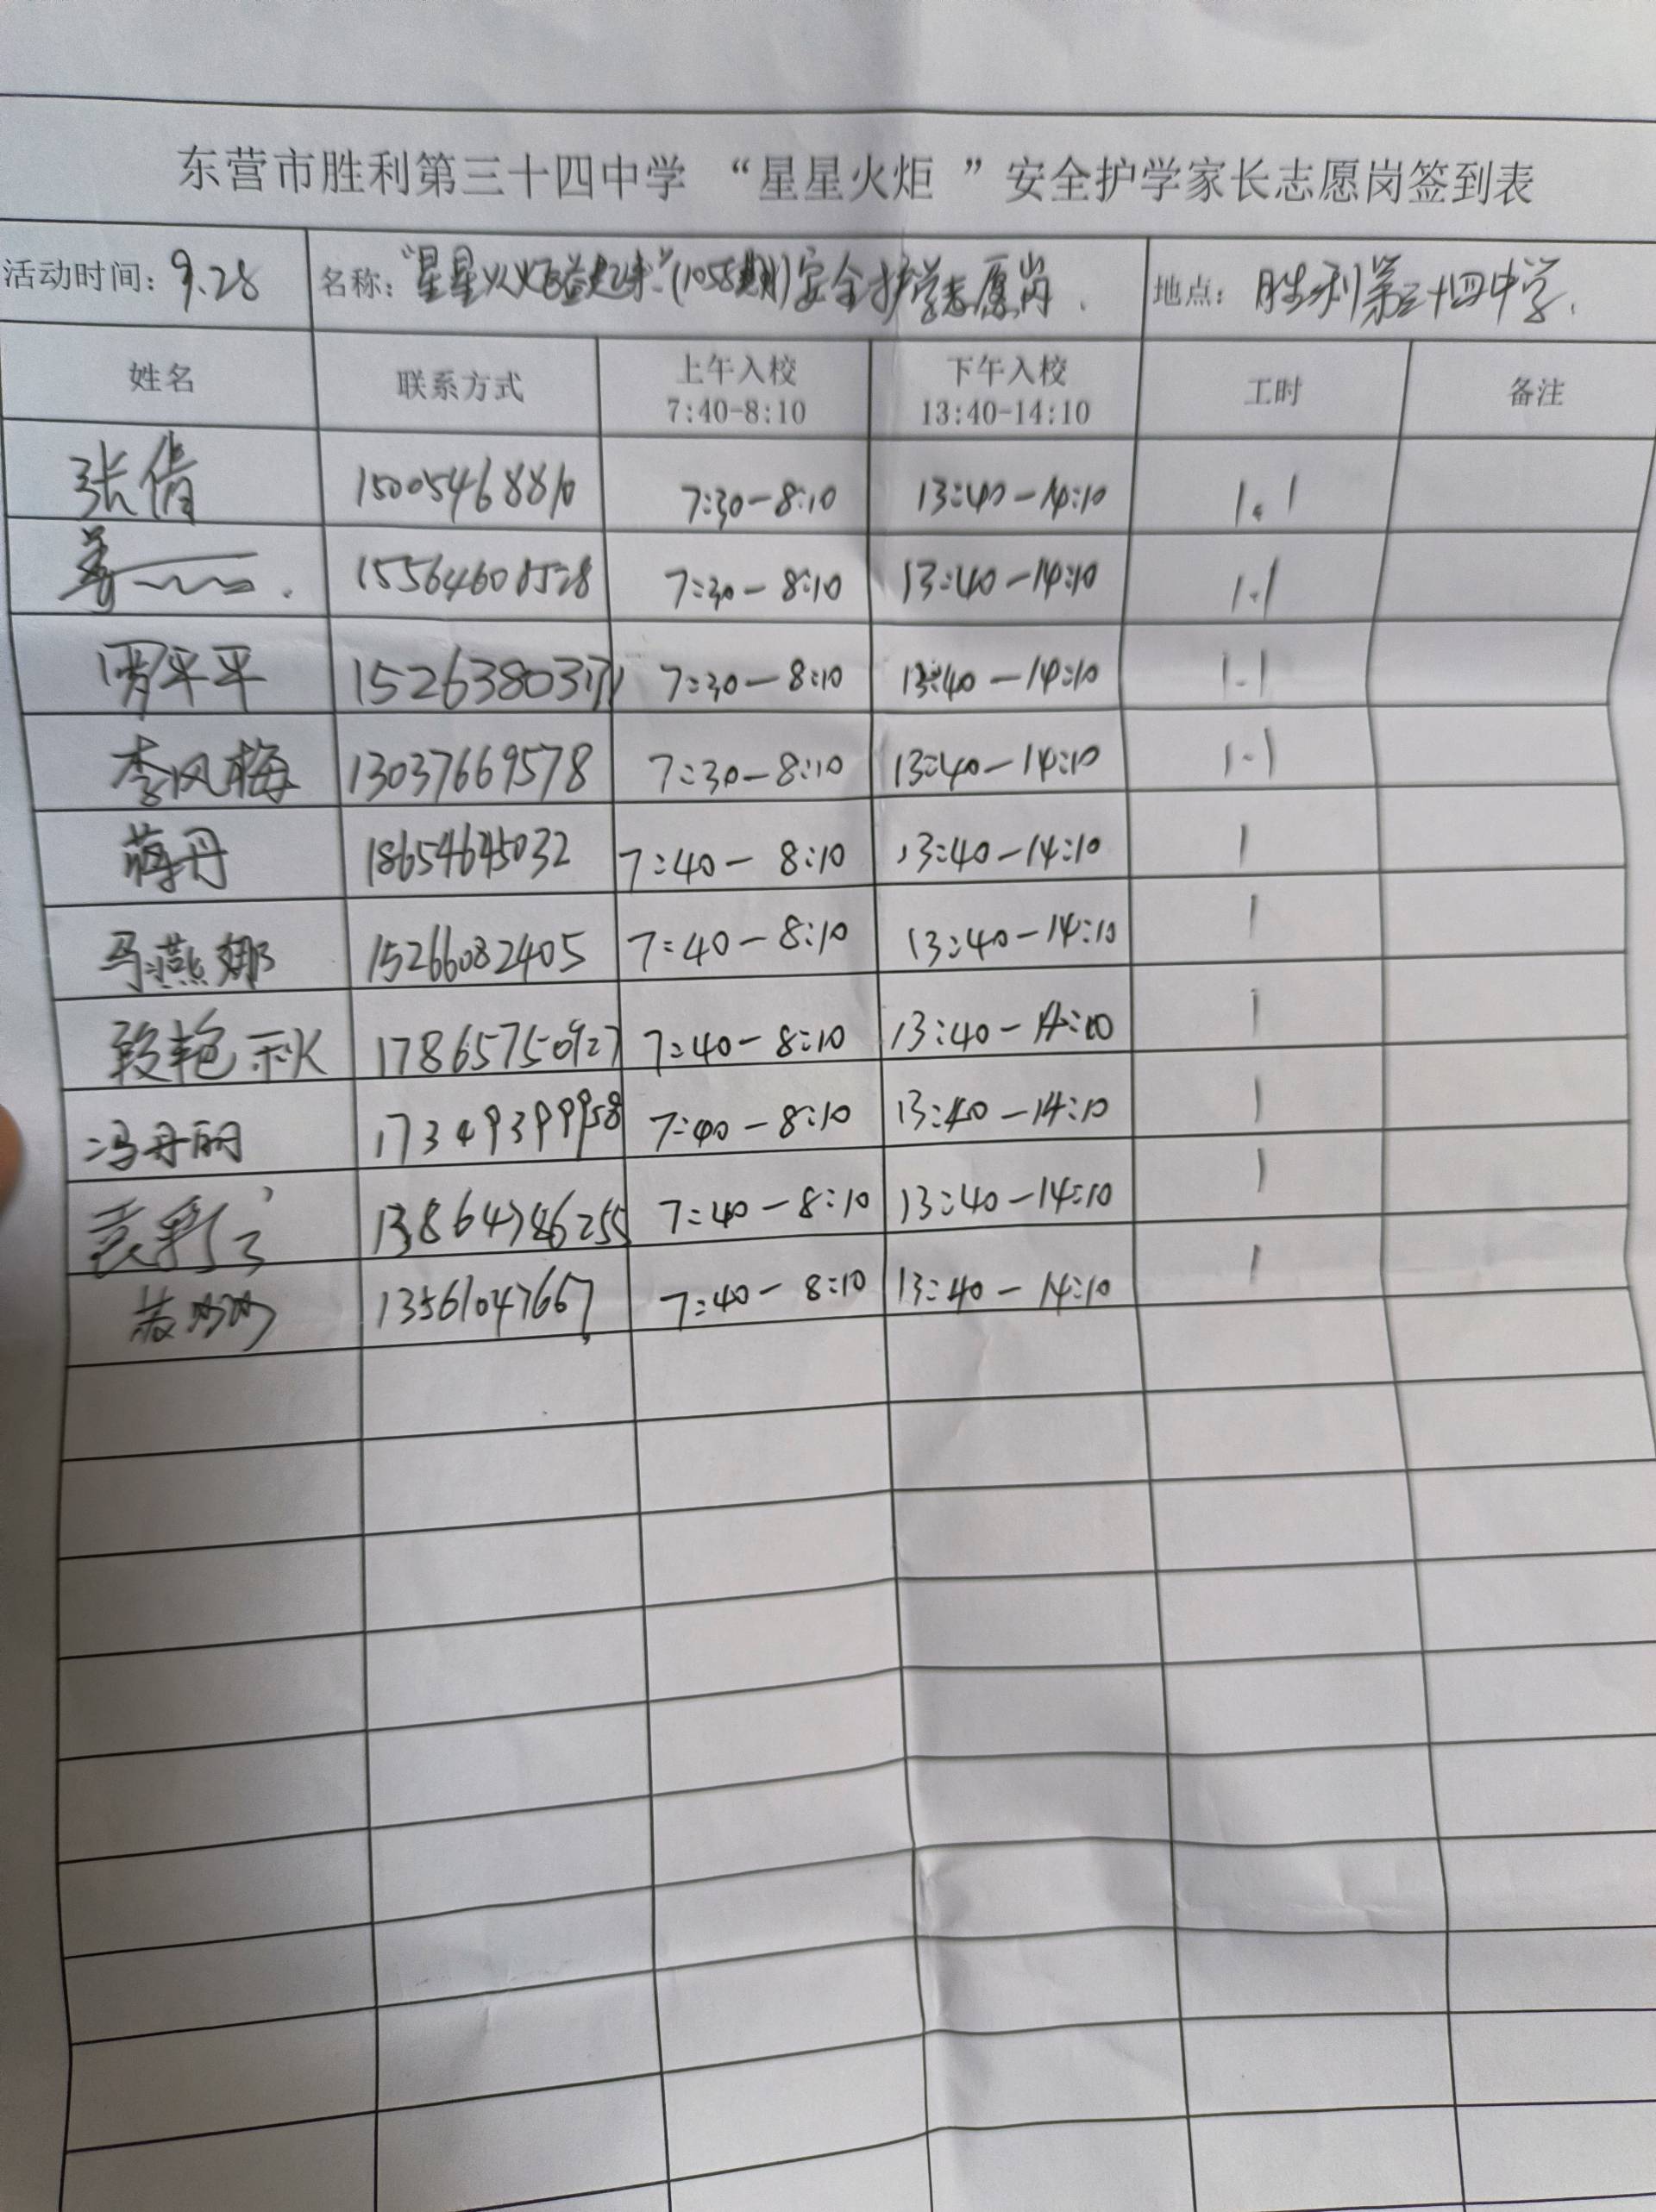 东营市胜利第三十四中学 “星星火炬 ”安全护学家长志愿岗签到表
活动时间：9.28 名称：“星星火炬益起来”(1058期)安全护学志愿岗. 地点：胜利第三十四中学.
姓名 联系方式 上午入校 7:40-8:10 下午入校 13:40-14:10 工时 备注
张倩 15005468810 7:30-8:10 13:40-14:10 1.1
姜 7:30-8:10 13:40-14:10 1.1
平平 7:30-8:10 13:40-14:10 1.1
李风梅 13037669578 7:30-8:10 13:40-14:10 1.1
蒋丹 18654645032 7:40-8:10 13:40-14:10 1
马燕娜 15266082405 7:40-8:10 13:40-14:10 1
段艳秋 17865750927 7:40-8:10 13:40-14:10 1
冯丹丽 17349399958 7:40-8:10 13:40-14:10 1
袁彩 13864786255 7:40-8:10 13:40-14:10 1
13561047667 7:40-8:10 13:40-14:10 1